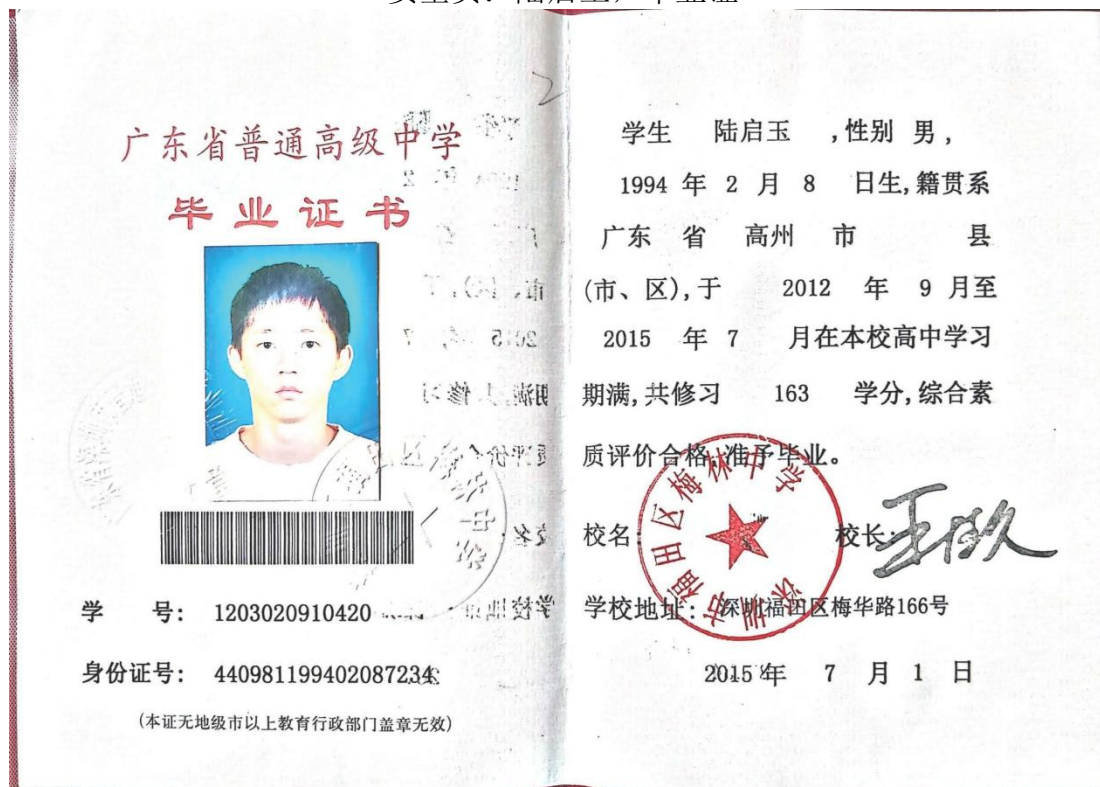 广东省普通高级中学
毕业证书
学 号： 1203020910420
身份证号： 440981199402087234
(本证无地级市以上教育行政部门盖章无效)
学生 陆启玉 ,性别 男,
1994 年 2 月 8 日生,籍贯系
广东 省 高州 市 县
(市、区),于 2012 年 9 月至
2015 年 7 月在本校高中学习
期满,共修习 163 学分,综合素
质评价合格,准予毕业。
校名: 校长:
深圳市福田区梅林中学
学校地址: 深圳福田区梅华路166号
2015 年 7 月 1 日